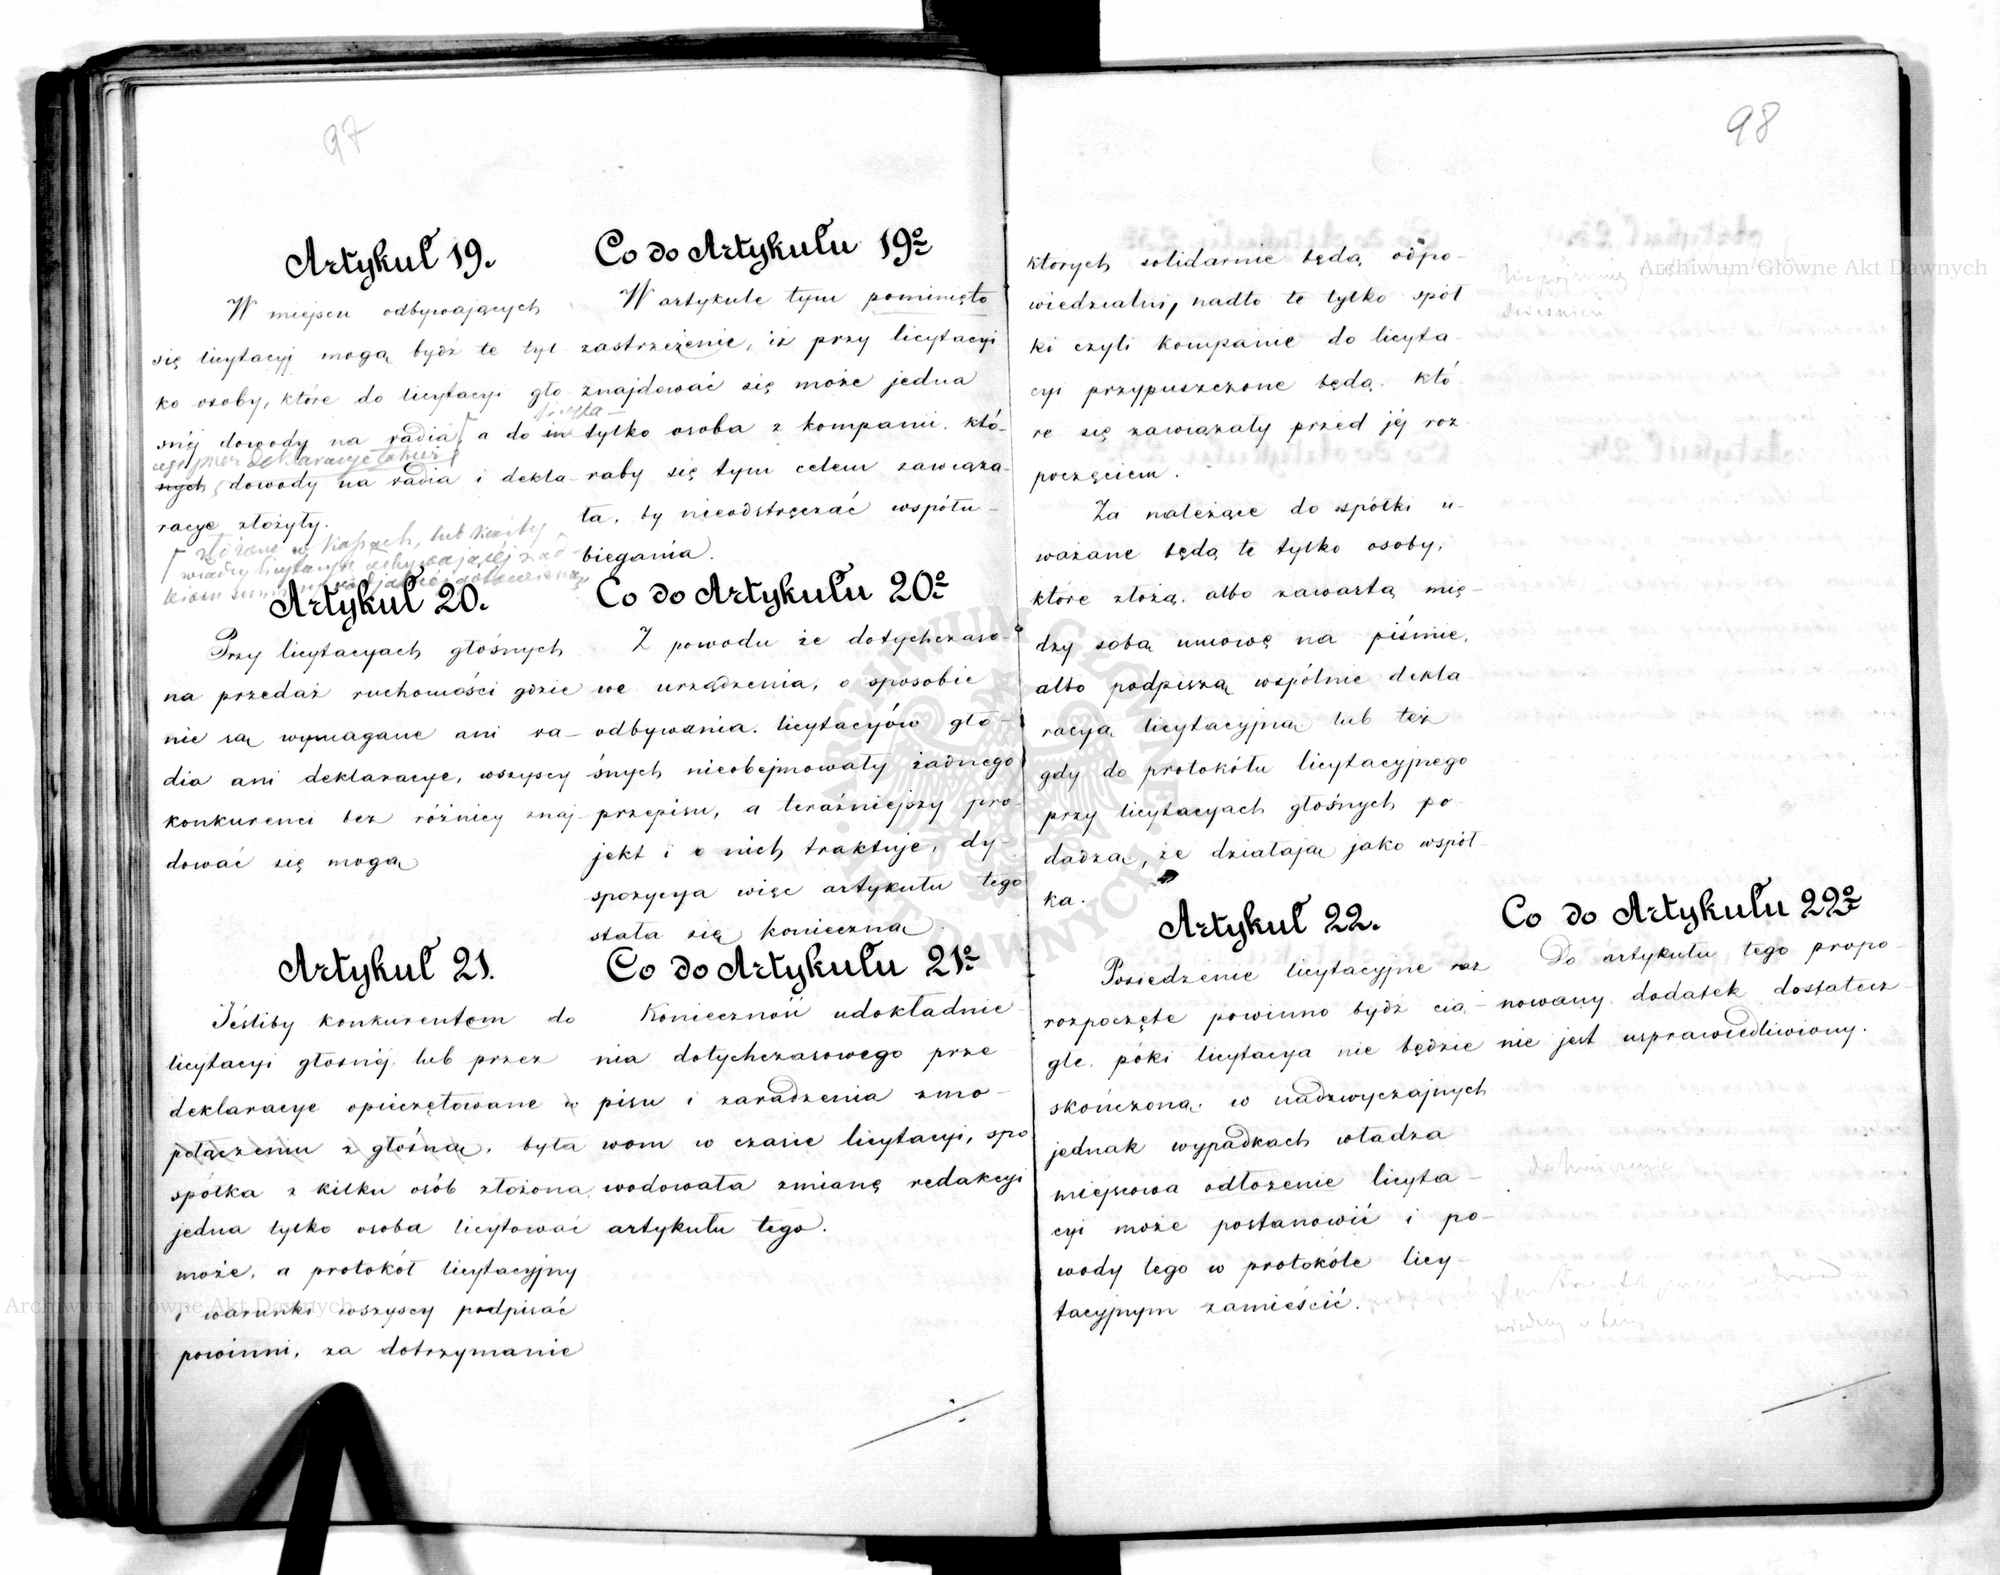 97
Artykuł 19.
W miejscu odbywających
się licytacyj mogą bydź te tyl
ko osoby, które do licytacyi gło
śnéj dowody na vadia, a do in
cyi przez deklaracye także
nych, dowody na vadia i dekla-
racye złożyły.
złożone w kassach, lub kwity
władzy licytacye odbywającej
Artykuł 20.
Przy licytacyach głośnych
na przedaż ruchomości gdzie
nie są wymagane ani va-
dia ani deklaracye, wszyscy
konkurenci bez różnicy znaj-
dować się mogą
Artykuł 21.
Jeśliby konkurentem do
licytacyi głośnéj lub przez
deklaracye opieczętowane w
połączeniu z głośną, była
spółka z kilku osób złożona,
jedna tylko osoba licytować
może, a protokół licytacyjny
i warunki wszyscy podpisać
powinni, za dotrzymanie
Co do Artykułu 19º
W artykule tym pominięto
zastrzeżenie, iż przy licytacyi
znajdować się może jedna
tylko osoba z kompanii, któ-
raby się tym celem zawiąza-
ła, by nieodstręczać współu-
biegania.
Co do Artykułu 20º
Z powodu że dotychczaso-
we urządzenia, o sposobie
odbywania licytacyów gło-
śnych nieobejmowały żadnego
przepisu, a teraźniejszy pro-
jekt i o nich traktuje, dy-
spozycya więc artykułu tego
stała się konieczną.
Co do Artykułu 21º
Konieczność udokładnie-
nia dotychczasowego prze
pisu i zaradzenia zmo-
wom w czasie licytacyi, spo
wodowała zmianę redakcyi
artykułu tego.
98
których solidarnie będą odpo-
wiedzialni, nadto te tylko spół
ki czyli kompanie do licyta-
cyi przypuszczone będą, któ
re się zawiązały przed jéj roz
poczęciem.
Za należące do spółki u-
ważane będą te tylko osoby,
które złożą, albo zawartą mię-
dzy sobą umowę na piśmie,
albo podpiszą wspólnie dekla
racyą licytacyjną lub też
gdy do protokółu licytacyjnego
przy licytacyach głośnych po-
dadzą, że działają jako współ-
ka.
Artykuł 22.
Posiedzenie licytacyjne raz
rozpoczęte powinno bydź cią-
głe, póki licytacya nie będzie
skończoną, w nadzwyczajnych
jednak wypadkach władza
miejscowa odłożenie licyta-
cyi może postanowić i po-
wody tego w protokóle licy-
tacyjnym zamieścić.
Co do Artykułu 22º
Do artykułu tego propo-
nowany dodatek dostatecz-
nie jest usprawiedliwiony.
Archiwum Główne Akt Dawnych
Archiwum Główne Akt Dawnych
ARCHIWUM GŁÓWNE AKT DAWNYCH